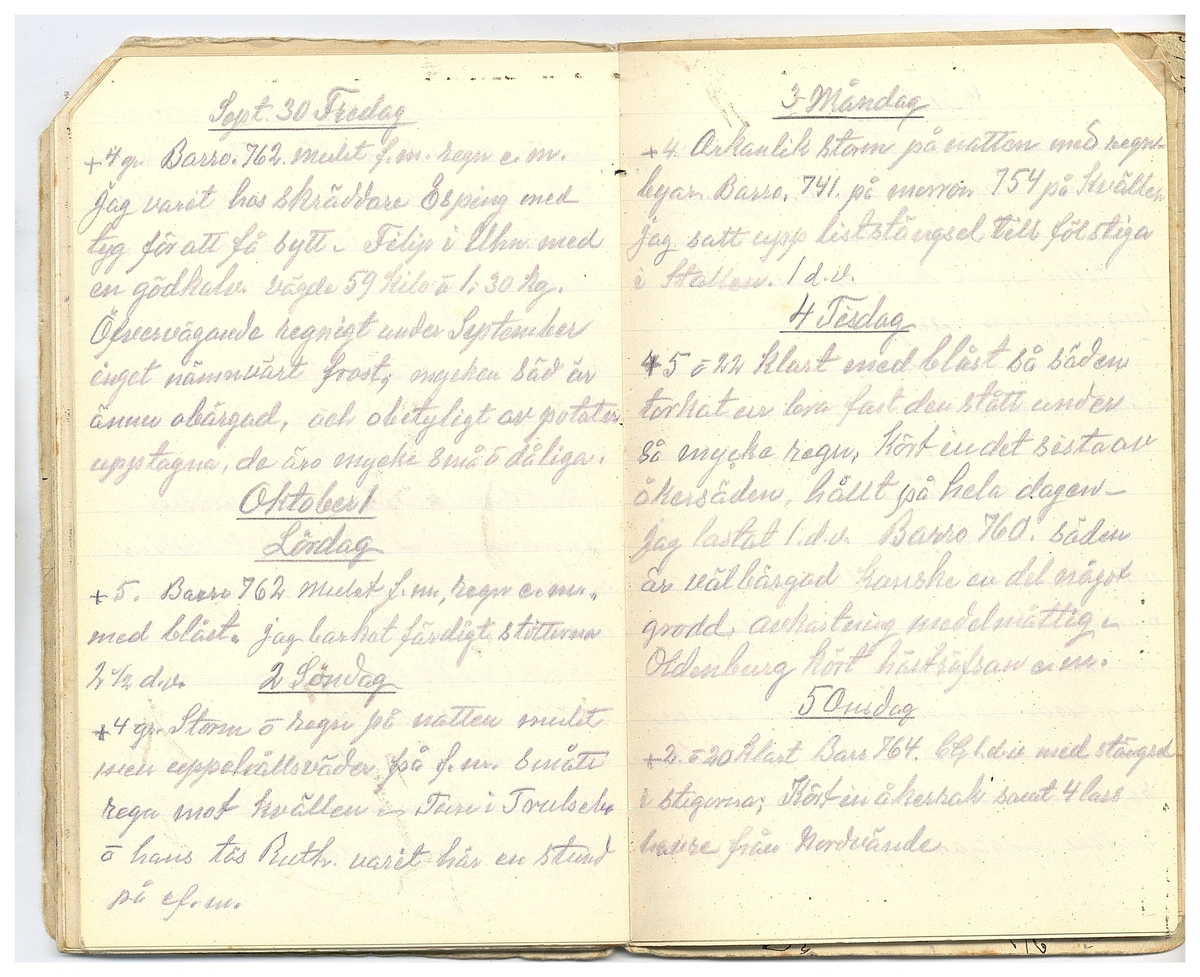 Sept. 30 Fredag
+4 gr. Barro. 762. mulet f.m. regn e.m.
Jag varit hos skräddare Esping med
tyg för att få sytt. Filip i Uhn. med
en gödkalv. vägde 59 kilo á 1:30 kg.
Öfvervägande regnigt under September
inget nämnvärt frost, mycken säd är
ännu obärgad, och obetyligt av potater
upptagna, de äro mycke små o dåliga.
Oktober 1
Lördag
+5. Barro 762 Mulet f.m., regn e.m.,
med blåst. Jag barkat färdigt stötterna
2 1/2 d.v.
2 Söndag
+4 gr. Storm o regn på natten mulet
men uppehållsväder på f.m. smått
regn mot kvällen Ture i Trulsebo
o hans tös Ruth. varit här en stund
på ef.m.
3 Måndag
+4. Orkanlik storm på natten med regn-
byar. Barro. 741. på morron 754 på kvällen
jag satt upp liststängsel till fölstiga
i Stallen. 1 d.v.
4 Tisdag
+5 o 22 klart med blåst så säden
torkat ur bra fast den stått under
så mycke regn, kört in det sista av
åkersäden, hållt på hela dagen–
Jag lastat 1. d.v. Barro 760. säden
är väl bärgad kanske en del något
grodd, avkastning medelmåttig.
Oldenburg kört hästräfsan e.m.
5 Onsdag
+2. o 20 klart Baro 764. 1 d.v med stängsel
i stegorna; Kört in åkerrak samt 4 lass
havre från Nordvände